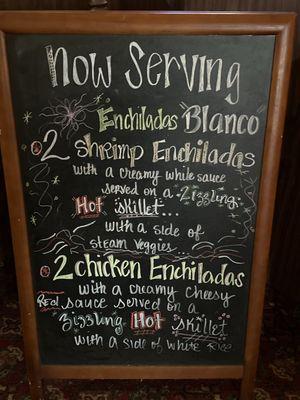 Now Serving
Enchiladas "Blanco"
2 Shrimp Enchiladas
with a creamy white sauce
served on a Zizzling
Hot Skillet...
with a side of
steam veggies
2 chicken Enchiladas
with a creamy cheesy
Red sauce served on a
Zizzling Hot skillet
with a side of white Rice